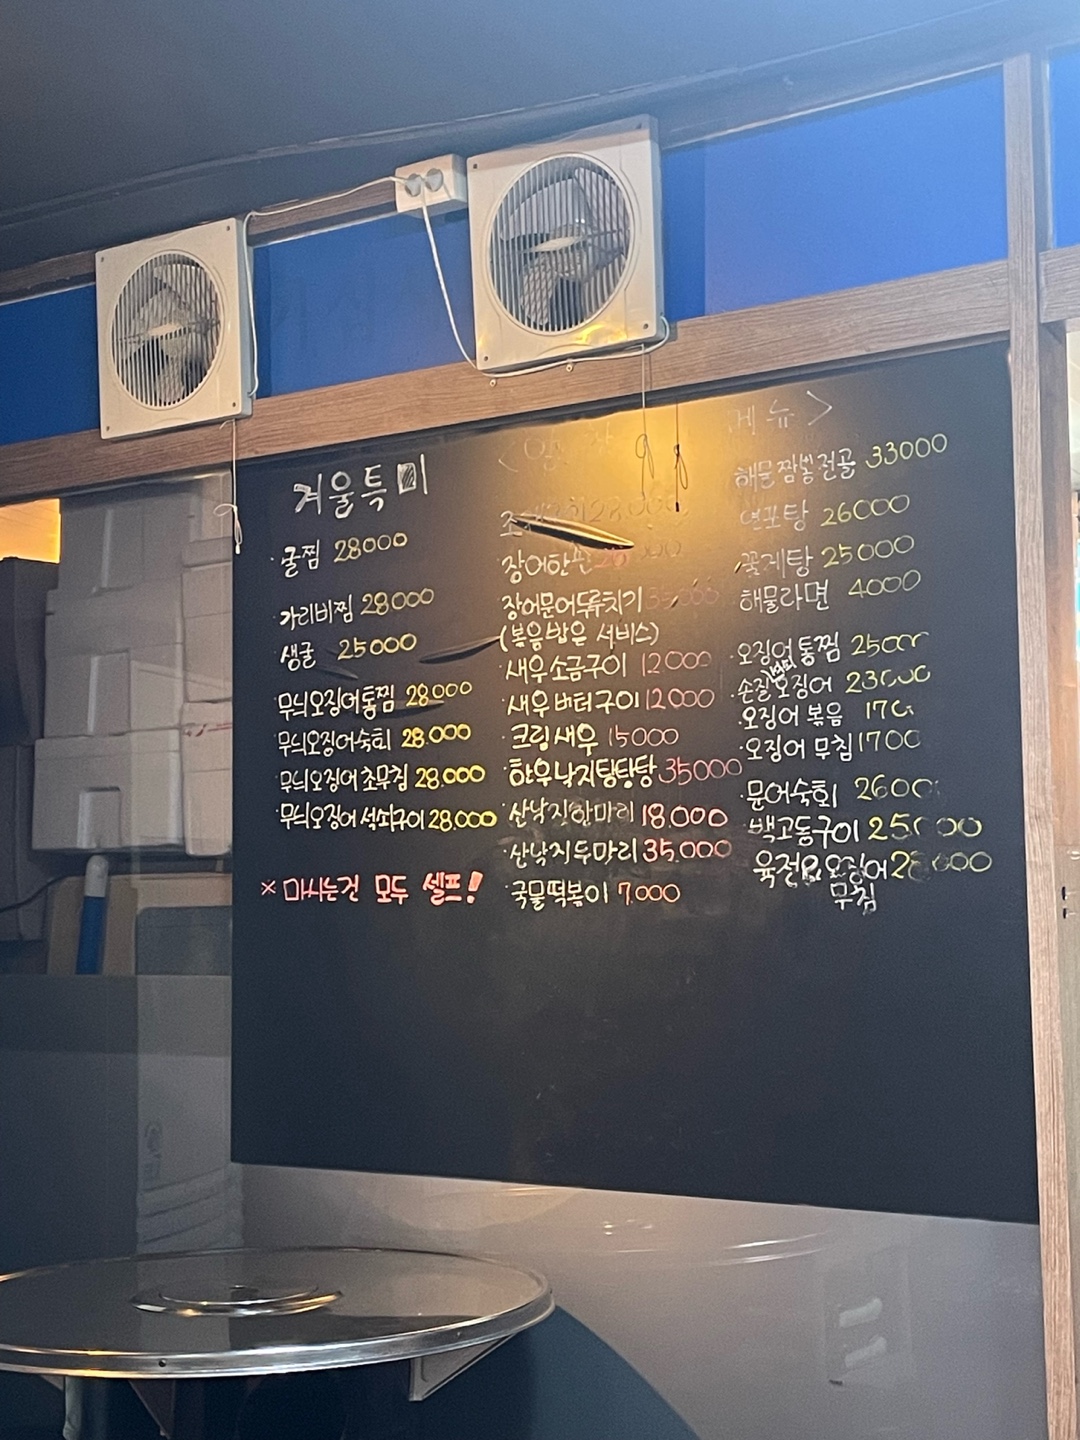 겨울특미
굴찜 28000
가리비찜 28000
생굴 25000
무늬오징어통찜 28.000
무늬오징어숙회 28.000
무늬오징어 초무침 28.000
무늬오징어 석쇠구이 28.000
※ 마시는건 모두 셀프!
장어한판
장어문어두루치기
(볶음밥은 서비스)
새우소금구이 12000
새우버터구이 12000
크림새우 15000
한우낙지탕탕탕 35000
산낙지한마리 18.000
산낙지두마리 35.000
국물떡볶이 7.000
메뉴>
해물짬뽕전골 33000
연포탕 26000
꽃게탕 25000
해물라면 4000
오징어통찜
손질오징어
오징어 볶음
오징어 무침
문어숙회
백고동구이
육전&오징어
무침